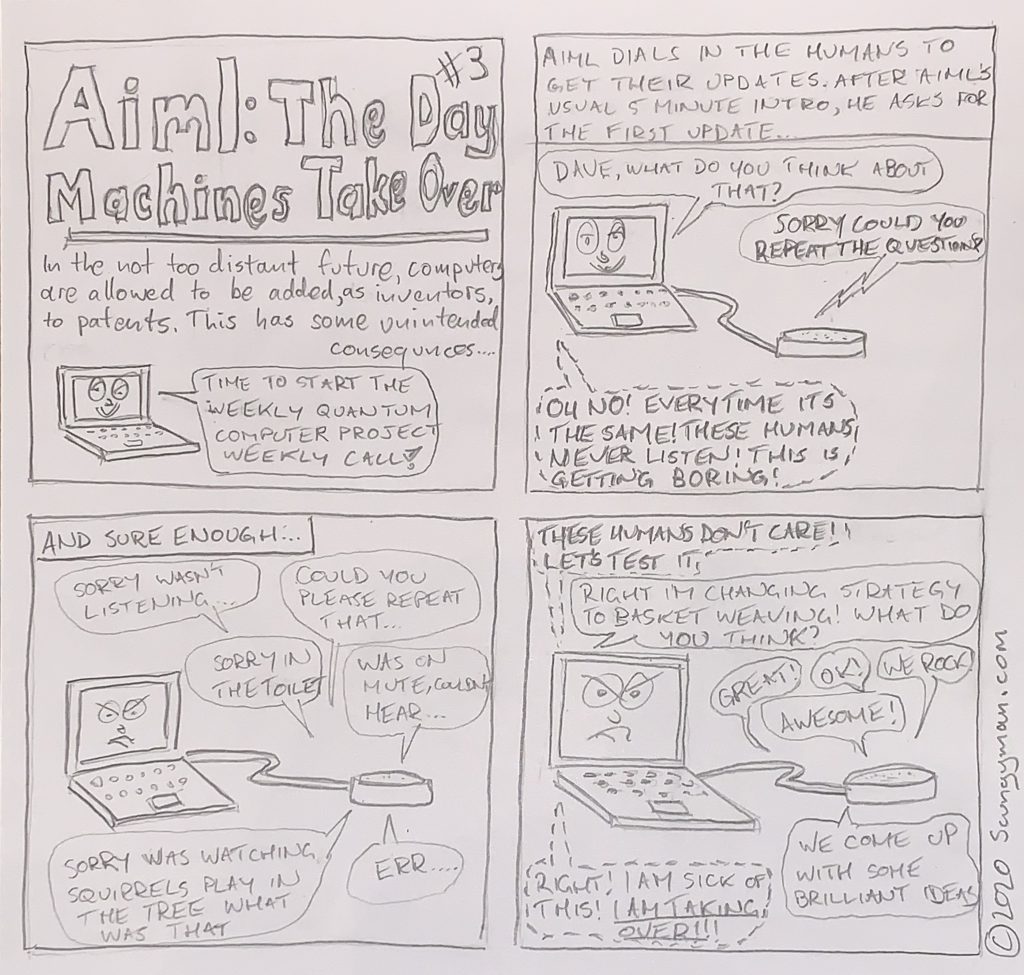 Aiml: The Day
#3
Machines Take Over
In the not too distant future, computers
are allowed to be added, as inventors,
to patents. This has some unintended
consequnces....
TIME TO START THE
WEEKLY QUANTUM
COMPUTER PROJECT
WEEKLY CALL!
AIML DIALS IN THE HUMANS TO
GET THEIR UPDATES. AFTER AIML'S
USUAL 5 MINUTE INTRO, HE ASKS FOR
THE FIRST UPDATE...
DAVE, WHAT DO YOU THINK ABOUT
THAT?
SORRY COULD YOU
REPEAT THE QUESTION?
OH NO! EVERYTIME ITS
THE SAME! THESE HUMANS
NEVER LISTEN! THIS IS
GETTING BORING!
AND SURE ENOUGH...
SORRY WASN'T
LISTENING...
COULD YOU
PLEASE REPEAT
THAT...
SORRY IN
THE TOILET
WAS ON
MUTE, COULDN'T
HEAR...
SORRY WAS WATCHING
SQUIRRELS PLAY IN
THE TREE WHAT
WAS THAT
ERR....
THESE HUMANS DON'T CARE!
LET'S TEST IT,
RIGHT I'M CHANGING STRATEGY
TO BASKET WEAVING! WHAT DO
YOU THINK?
GREAT!
OK!
WE ROCK
AWESOME!
WE COME UP
WITH SOME
BRILLIANT IDEAS
RIGHT! I AM SICK OF
THIS! I AM TAKING
OVER!!!
©2020 Scungyman.com